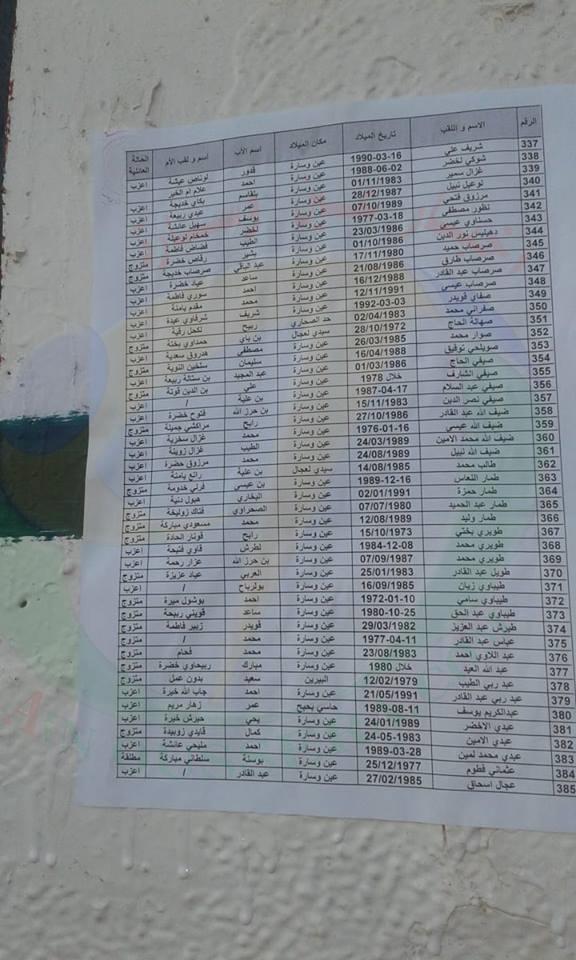 الرقم الاسم و اللقب تاريخ الميلاد مكان الميلاد اسم الأب اسم و لقب الأم الحالة العائلية
337 شريف علي 1990-03-16 عين وسارة قدور عيشة اعزب
338 شوكي لخضر 1988-06-02 عين وسارة احمد علام ام الخير
339 غزال سمير 01/11/1983 عين وسارة بلقاسم بكاي خديجة
340 لوعيل نبيل 28/12/1987 عين وسارة عمر عبدي ربيعة
341 مرزوق فتحي 07/10/1989 عين وسارة يوسف سهيل عائشة
342 نظور مصطفى 1977-03-18 عين وسارة لخضر
343 حسناوي عيسى 23/03/1986 عين وسارة الطيب فاطمة
344 دهيليس نور الدين 01/10/1986 عين وسارة بشير رقاص خضرة
345 صرصاب حميد 17/11/1980 عين وسارة عبد الباقي صرصاب خديجة
346 صرصاب طارق 21/08/1986 عين وسارة ساعد عياد خضرة
347 صرصاب عبد القادر 16/12/1988 عين وسارة احمد سوري فاطمة
348 صرصاب عيسى 12/11/1991 عين وسارة محمد مقدم يامنة
349 صفاي قويدر 1992-03-03 عين وسارة شريف شرفاوي عيدة
350 صفراني محمد 02/04/1983 حد الصحاري ربيح لكحل رقية
351 صهالة الحاج 28/10/1972 سيدي لعجال بن باي حمداوي بختة
352 صوار محمد 26/03/1985 عين وسارة مصطفى هدروق سعدية
353 صويلحي توفيق 16/04/1988 عين وسارة سليمان النوية
354 صيفي الحاج 01/03/1986 عين وسارة عبد المجيد ربيعة
355 صيفي الشارف خلال 1978 عين وسارة علي بن الدين
356 صيفي عبد السلام 1987-04-17 عين وسارة بن علية /
357 صيفي نصر الدين 15/11/1983 عين وسارة بن حرز الله فتوح خضرة
358 ضيف الله عبد القادر 27/10/1986 عين وسارة رابح مراكشي جميلة
359 ضيف الله عيسى 1976-01-16 عين وسارة محمد غزال سخرية متزوج
360 ضيف الله محمد الامين 24/03/1989 عين وسارة الطيب غزال زوينة اعزب
361 ضيف الله نبيل 24/08/1989 عين وسارة محمد مرزوق خضرة اعزب
362 طالب محمد 14/08/1985 سيدي لعجال بن علية يامنة اعزب
363 طمار اللعاس 1989-12-16 عين وسارة بن عيسى خدومة متزوج
364 طمار حمزة 02/01/1991 عين وسارة البخاري هبول دنية اعزب
365 طمار عبد الحميد 07/07/1980 عين وسارة الصحراوي فتاك زوليخة متزوج
366 طمار وليد 12/08/1989 عين وسارة محمد مسعودي مباركة متزوج
367 طويري بختي 15/10/1973 عين وسارة رابح قوتار الحادة متزوج
368 طويري محمد 1984-12-08 عين وسارة لطرش قاوي فتيحة اعزب
369 طويري محمد 07/09/1987 عين وسارة بن حرز الله عزار رحمة اعزب
370 طويل عبد القادر 25/01/1983 عين وسارة العربي عياد عزيزة متزوج
371 طيباوي زيان 16/09/1985 عين وسارة بولرباح اعزب
372 طيباوي سامي 1972-01-10 عين وسارة احمد بوشول ميرة متزوج
373 طيباوي عبد الحق 1980-10-25 عين وسارة ساعد قويني ربيحة متزوج
374 طيرش عبد العزيز 29/03/1982 عين وسارة قويدر زبير فاطمة متزوج
375 عباس عبد القادر 1977-04-11 عين وسارة محمد / متزوج
376 عبد اللاوي احمد 23/08/1983 عين وسارة محمد قحام متزوج
377 عبد الله العيد خلال 1980 عين وسارة مبارك ربيحاوي خضرة متزوج
378 عبد ربي الطيب 12/02/1979 البيرين سعيد بدون عمل متزوج
379 عبد ربي عبد القادر 21/05/1991 عين وسارة احمد جاب الله خيرة اعزب
380 عبدالكريم يوسف 1989-08-11 حاسي بحبح عمر زهار مريم اعزب
381 عبدي الاخضر 24/01/1989 عين وسارة يحي حيرش خيرة اعزب
382 عبدي الامين 24-05-1983 عين وسارة كمال قايدي زوبيدة متزوج
383 عبدي محمد لمين 1989-03-28 عين وسارة احمد مليحي عائشة اعزب
384 عثماني فطوم 25/12/1977 عين وسارة بوستة سلطاني مباركة مطلقة
385 عجال اسحاق 27/02/1985 عين وسارة عبد القادر / اعزب